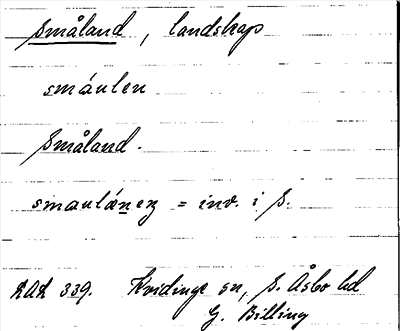 Småland, landskap
småulen
Småland.
smaulánez = inv. i S.
339. Kvidinge sn, S. Åsbo hd
G. Billing